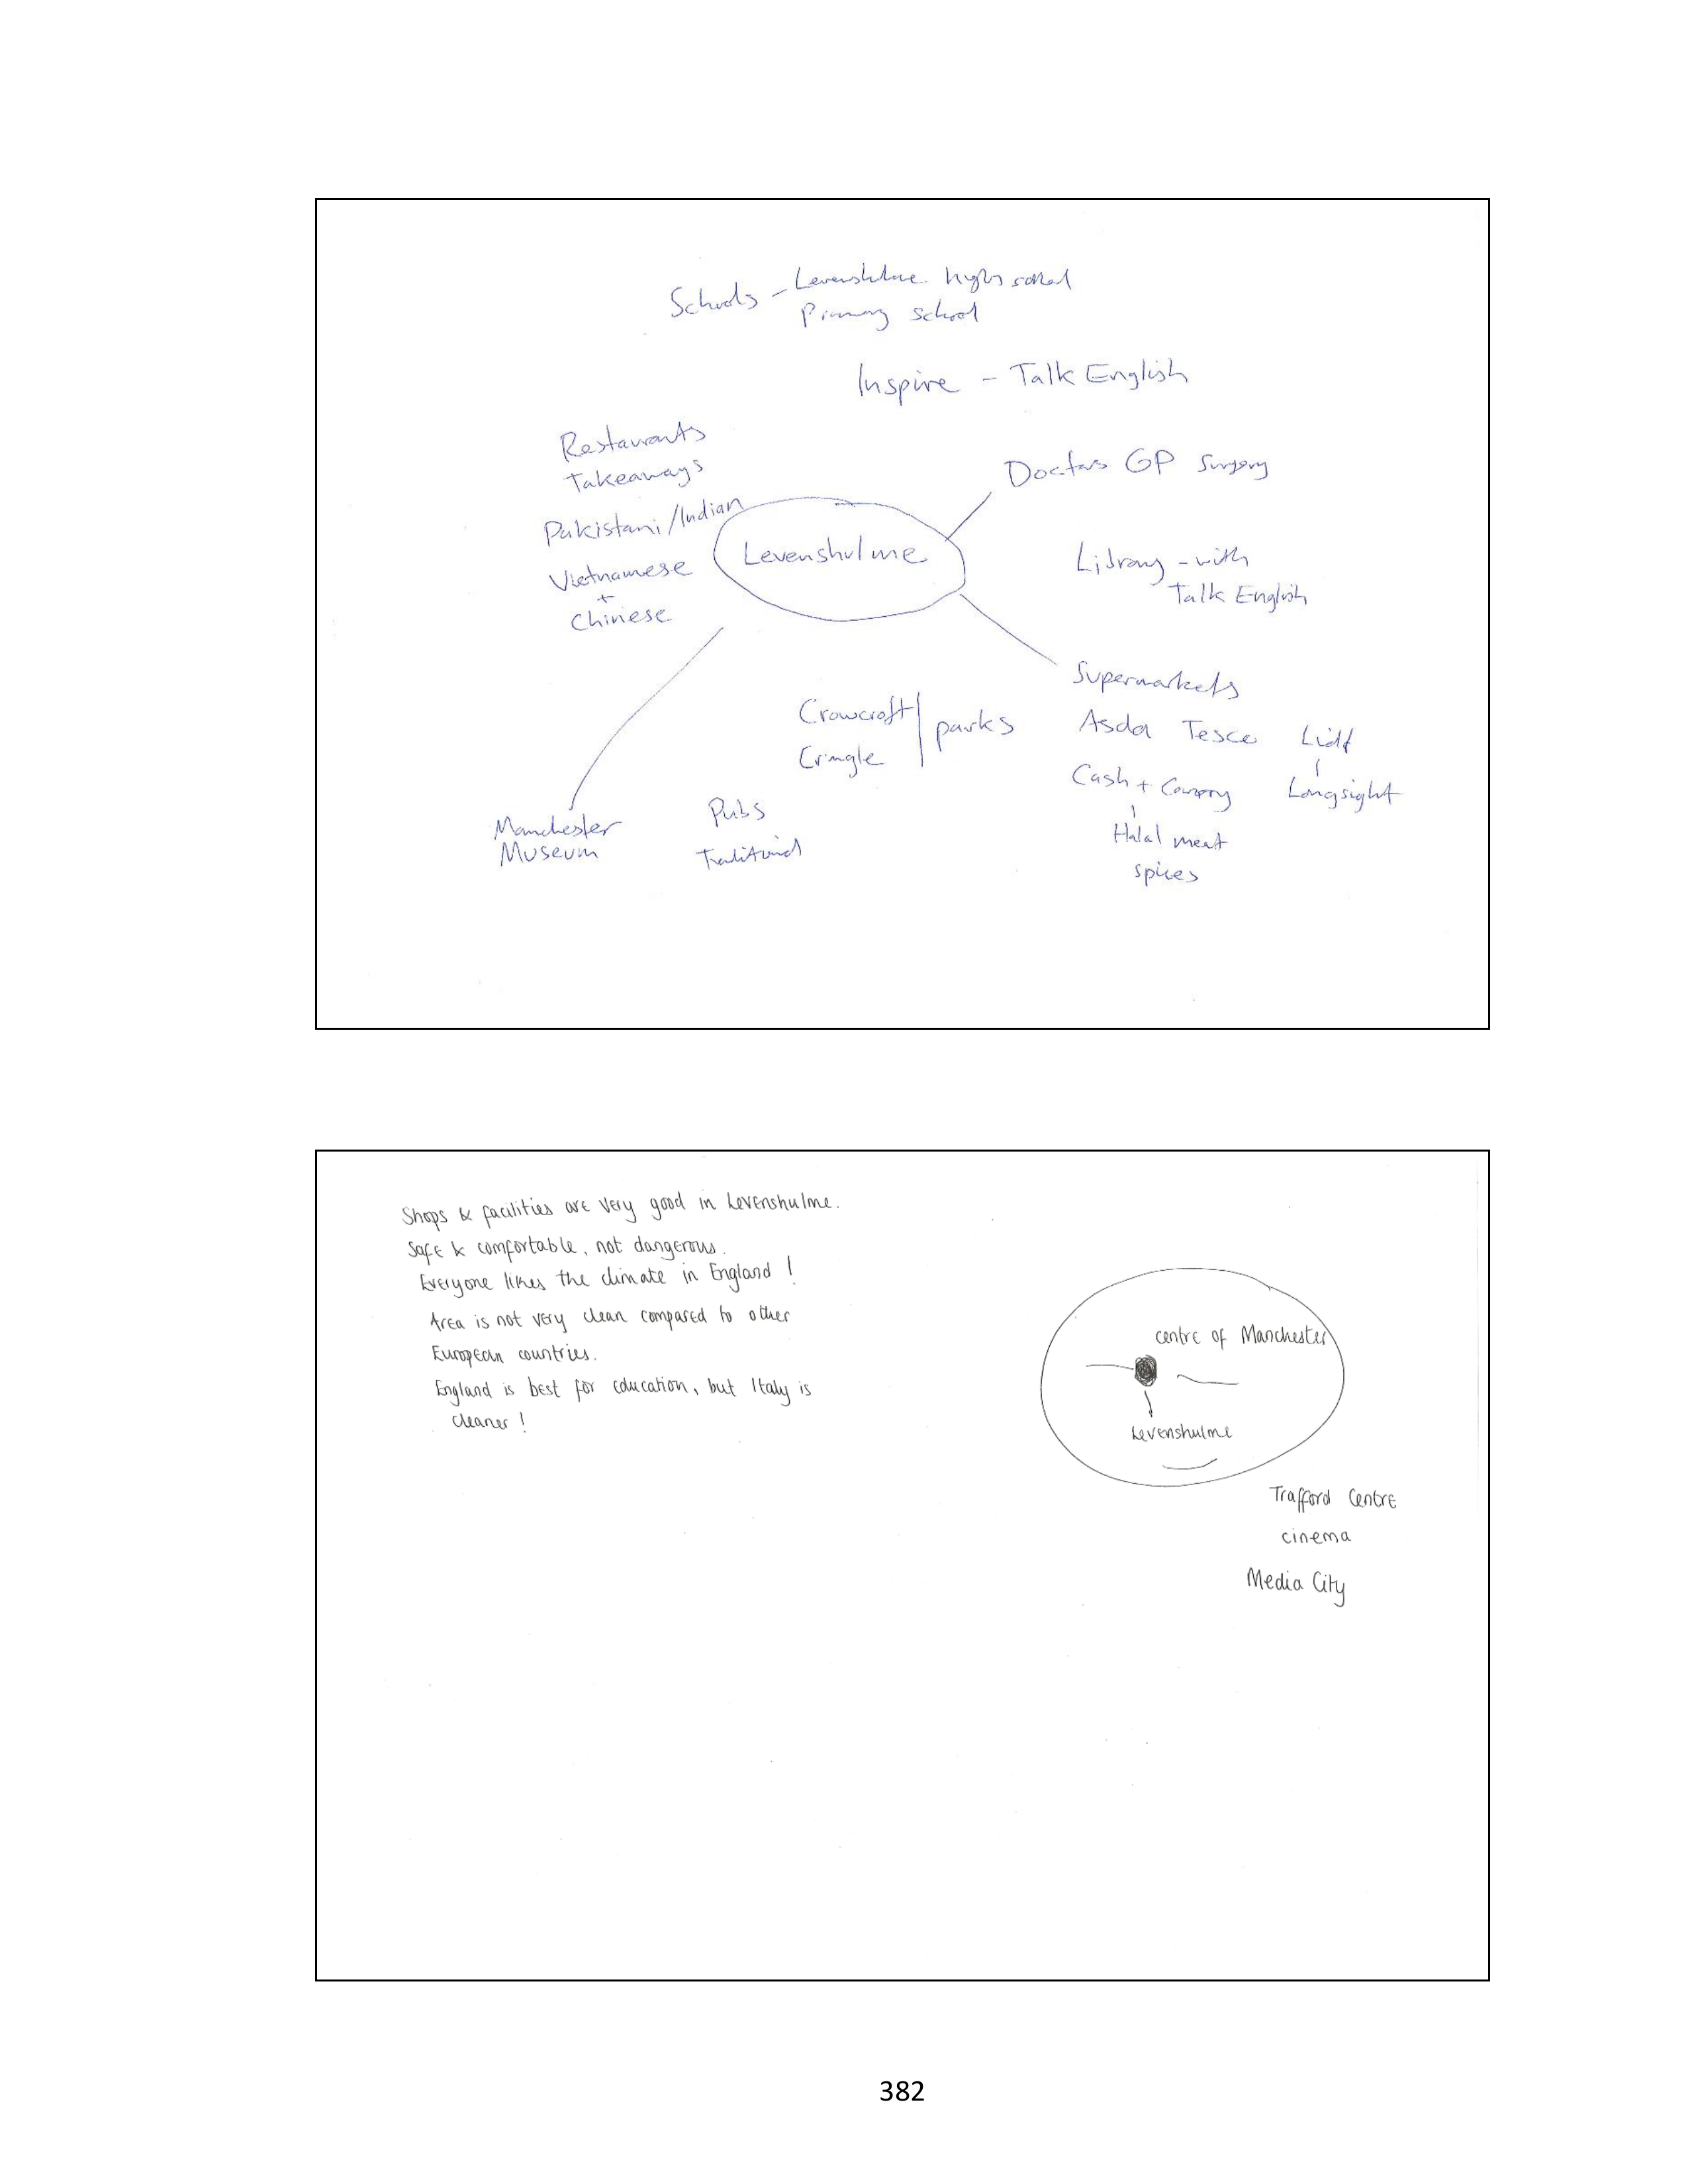 Schools - Levenshulme high school
Primary school
Inspire - Talk English
Restaurants
Takeaways
Pakistani/Indian
Vietnamese
+
Chinese
Levenshulme
Doctors GP Surgery
Library - with
Talk English
Supermarkets
Asda Tesco Lidl
Cash + Carry Longsight
Halal meat
spices
Crowcroft
Cringle
parks
Pubs
Traditional
Manchester
Museum
Shops & facilities are very good in Levenshulme.
Safe & comfortable, not dangerous.
Everyone likes the climate in England!
Area is not very clean compared to other
European countries.
England is best for education, but Italy is
cleaner!
centre of Manchester
Levenshulme
Trafford Centre
cinema
Media City
382